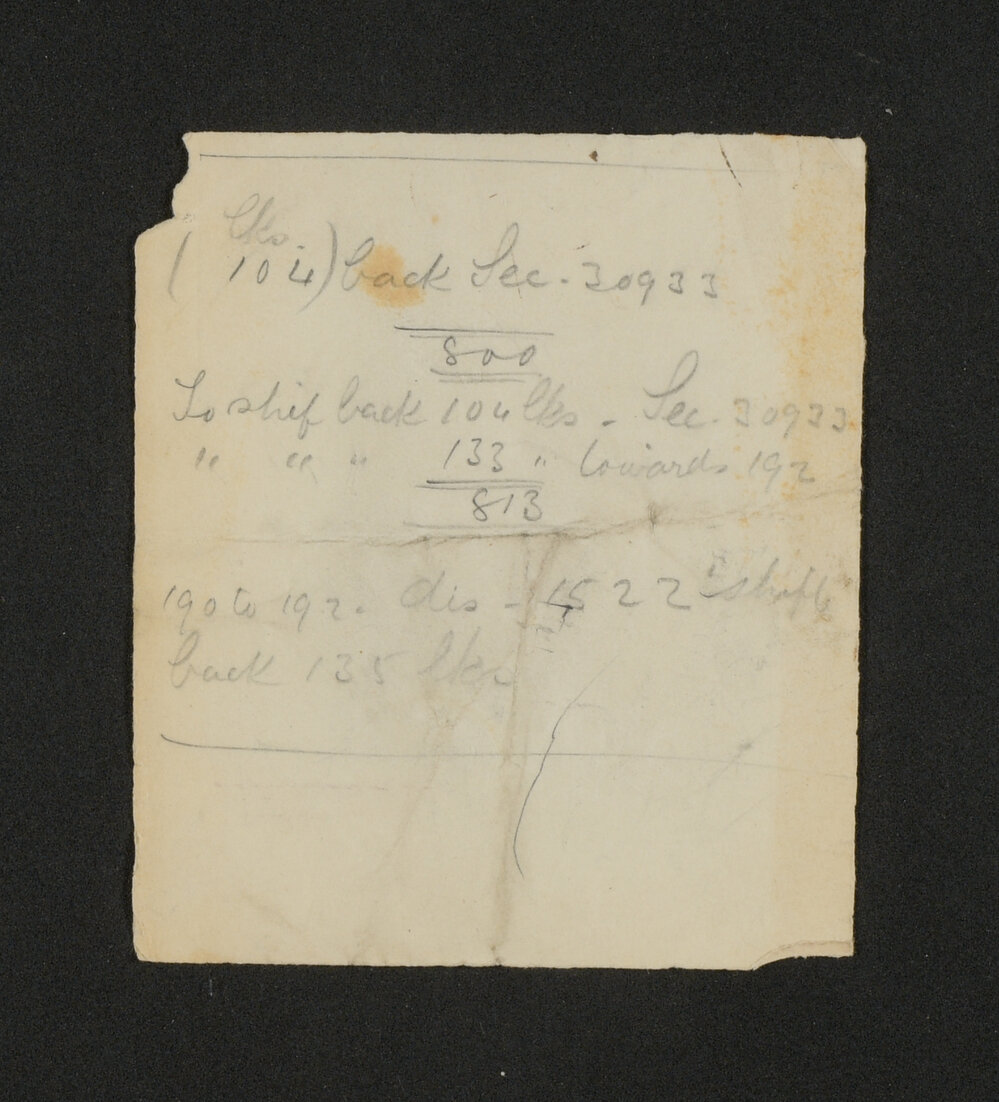 lks.
( 104) back Sec. 30933
800
To shif back 104 lks - Sec. 30933
" " " 133 " towards 192
813
190 to 192. dis - 1522 shift
back 135 lks